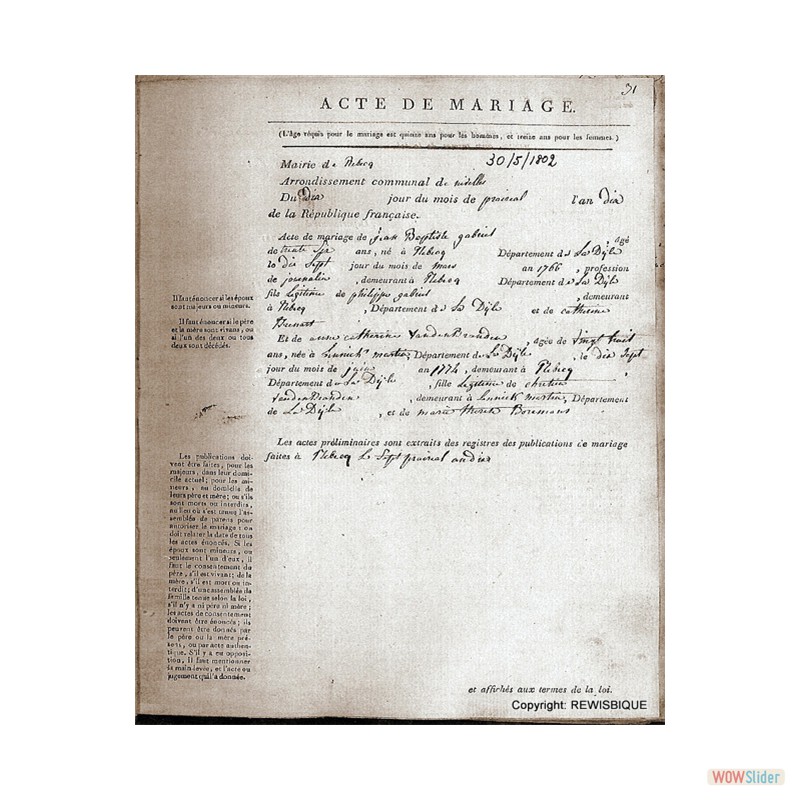 31
ACTE DE MARIAGE.
(L'âge réquis pour le mariage est quinze ans pour les hommes, et treize ans pour les femmes.)
30/5/1802
Mairie de Rebecq
Arrondissement communal de nivelles
Du dix jour du mois de prairial l'an dix
de la République française.
Acte de mariage de jean Baptiste gabriel âgé
de trente six ans, né à Rebecq Département de La Dÿle
le dix Sept jour du mois de mars an 1766, profession
de journalier, demeurant à Rebecq Département de La Dÿle
fils légitime de philippe gabriel, demeurant
à Rebecq, Département de La Dÿle et de catherine
Et de anne catherine VandenBranden, agée de vingt huit
ans, née à Lennick martin, Département de La Dÿle, le dix Sept
jour du mois de juin an 1774, demeurant à Rebecq
Département de La Dÿle, fille légitime de
VandenBranden, demeurant à Lennick martin, Département
de La Dÿle, et de marie therese
Les actes préliminaires sont extraits des registres des publications de mariage
faites à Rebecq le Sept prairial an dix
Il faut énoncer si les époux
sont majeurs ou mineurs.
Il faut énoncer si le père
et la mère sont vivans, ou
si l'un des deux ou tous
deux sont décédés.
Les publications doi-
vent être faites, pour les
majeurs, dans leur domi-
cile actuel; pour les mi-
neurs, au domicile de
leurs père et mère; ou s'ils
sont morts ou interdits,
au lieu où s'est tenue l'as-
semblée de parens pour
autoriser le mariage: on
doit relater la date de tous
les actes énoncés. Si les
époux sont mineurs, ou
seulement l'un d'eux, il
faut le consentement du
père, s'il est vivant; de la
mère, s'il est mort ou in-
terdit; d'une assemblée de
famille tenue selon la loi,
s'il n'y a ni père ni mère;
les actes de consentement
doivent être énoncés; ils
peuvent être donnés par
le père ou la mère pré-
sens, ou par acte authen-
tique. S'il y a eu opposi-
tion, il faut mentionner
la main-levée, et l'acte ou
jugement qui l'a donnée.
et affichés aux termes de la loi.
Copyright: REWISBIQUE
WOWSlider